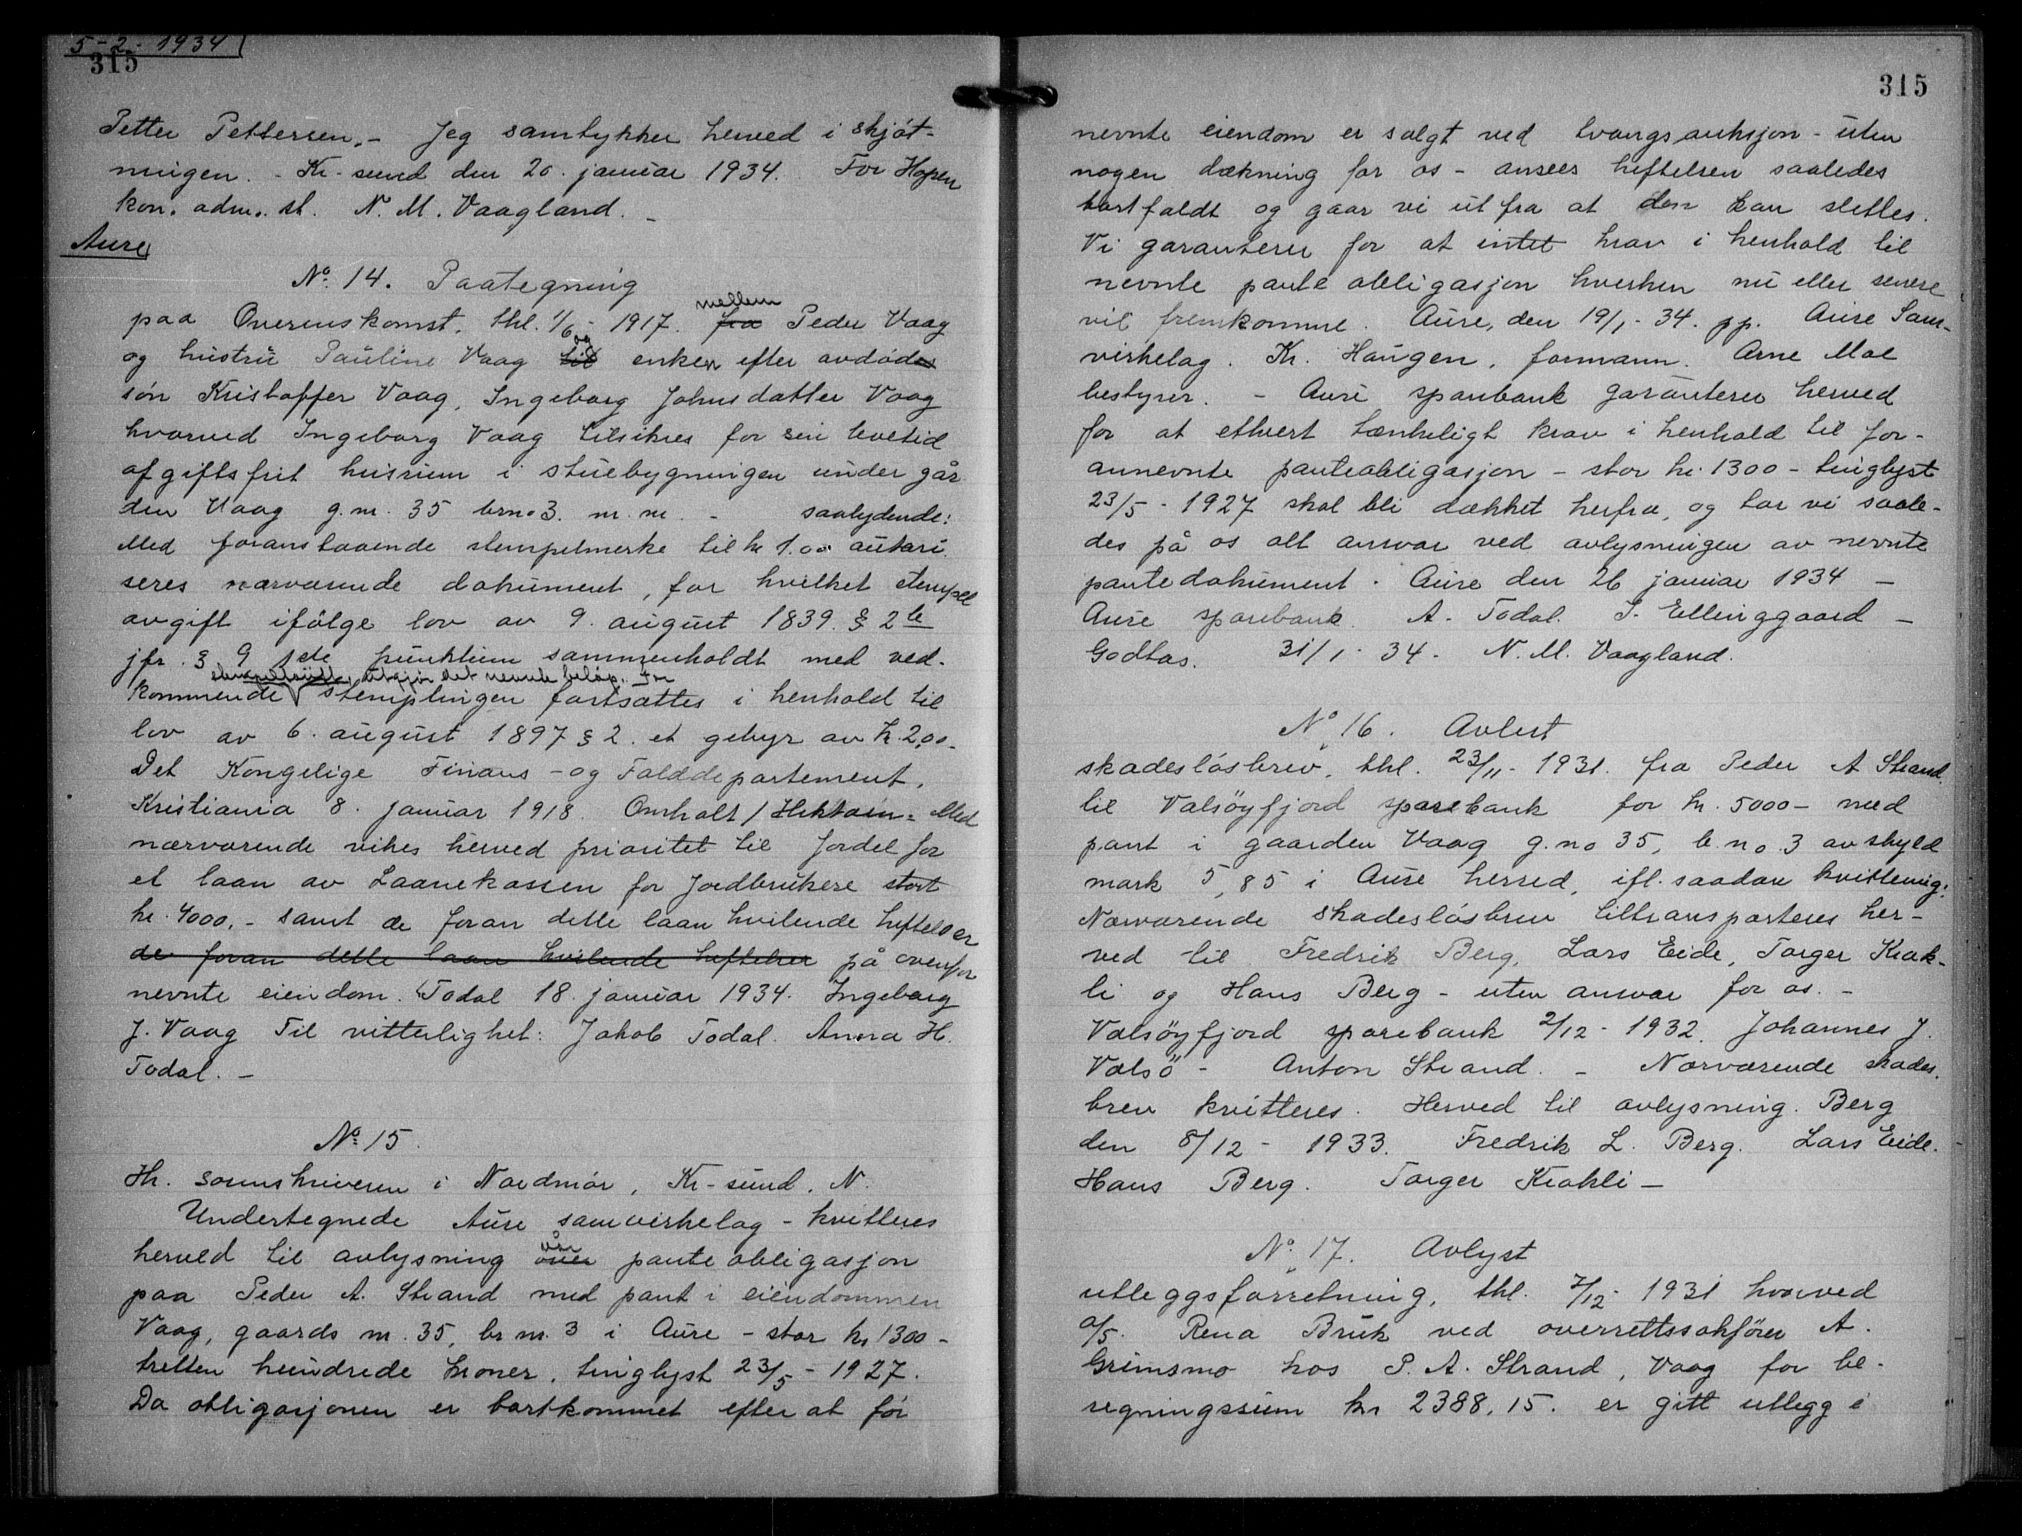 5-2-1934
315
Petter Pettersen. - Jeg samtykker herved i skjøt-
ningen. - Kr-sund den 20. januar 1934. For Hopen
kon. adm. st. N. M. Vaagland. -
Aure
No. 14. Paategning
mellem
paa Overenskomst, thl. 1/6 - 1917. fra Peder Vaag
og
og hustru Pauline Vaag til enken efter avdøde
søn Kristoffer Vaag, Ingeborg Johnsdatter Vaag
hvorved Ingeborg Vaag tilsikres for sin levetid
afgiftsfrit husrum i stuebygningen under går
den Vaag g.nr. 35 brno 3. m. m. - saalydende:
Med foranstaaende stempelmerke til kr 1.00 autori
seres nærværende dokument, for hvilket stempel
avgift ifølge lov av 9. august 1839 § 2 le
jfr. § 9 1ste punktum sammenholdt med ved-
utgjør det nevnte beløp. For
kommende stemplingen fortsættes i henhold til
lov av 6. august 1897 § 2. et gebyr av kr. 2,00-
Det Kongelige Finans - og Tolddepartement,
Kristiania 8. januar 1918. Omholt / Hektoen = Med
nærværende vikes herved prioritet til fordel for
et laan av Laanekassen for Jordbrukere stort
kr. 4000,- samt de foran dette laan hvilende heftelser
de foran dette laan hvilende heftelser på ovenfor
nevnte eiendom. Todal 18. januar 1934. Ingeborg
J. Vaag Til vitterlighet: Jakob Todal. Anna H.
Todal. -
No. 15.
Hr. sorenskriveren i Nordmør, Kr-sund. N.
Undertegnede Aure samvirkelag - kvitteres
vår
herved til avlysning over pante obligasjon
paa Peder A. Strand med pant i eiendommen
Vaag, gaards nr. 35, br nr. 3 i Aure - stor kr 1300 -
tretten hundrede kroner, tinglyst 23/5 - 1927.
Da obligasjonen er bortkommet efter at før
315
nevnte eiendom er solgt ved tvangsauksjon - uten
nogen dækning for os - ansees heftelsen saaledes
bortfaldt og gaar vi ut fra at den kan slettes.
Vi garanterer for at intet krav i henhold til
nevnte pante obligasjon hverken nu eller senere
vil fremkomme. Aure, den 19/1 - 34. pp. Aure Sam-
virkelag. Kr. Haugen, formann. Arne Moe
bestyrer. - Aure sparebank garanterer herved
for at ethvert tænkeligt krav i henhold til for-
annevnte panteobligasjon - stor kr. 1300 - tinglyst
23/5 - 1927 skal bli dækket herfra, og tar vi saale-
des på os alt ansvar ved avlysningen av nevnte
pantedokument. Aure den 26 januar 1934 -
Aure sparebank. A. Todal. P. Ellinggaard -
Godtas. 31/1 - 34. N. M. Vaagland.
No 16. Avlest
skadesløsbrev, thl. 23/11 - 1931. fra Peder A Strand
til Valsøyfjord sparebank for kr. 5000 - med
pant i gaarden Vaag g.no 35, b.no. 3 av skyld
mark 5,85 i Aure herred, ifl. saadan kvittering:
Nærværende skadesløsbrev tiltransporteres her-
ved til Fredrik Berg, Lars Eide, Torger Krok-
li og Hans Berg - uten ansvar for os. -
Valsøyfjord sparebank 2/12 - 1932. Johannes J.
Valsø - Anton Strand. - Nærværende skades.
brev kvitteres. Herved til avlysning. Berg
den 8/12 - 1933. Fredrik L. Berg. Lars Eide.
Hans Berg. Torger Krokli -
No. 17. Avlyst
utleggsforretning, thl. 7/12 - 1931 hvorved
a/s. Rena Bruk ved overrettssakfører A.
Grimsmo hos P. A. Strand, Vaag for be-
regningssum kr 2388,15. er gitt utlegg i